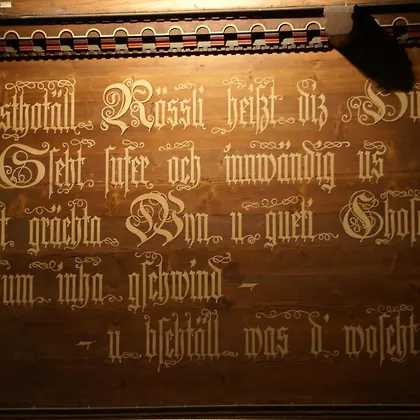 sthotäll Rössli heißt diz Hu
Gseht sufer och innwändig us
t grächta Wyn u gueti Chos
um inha gschwind -
- u bschtäll was d' woscht